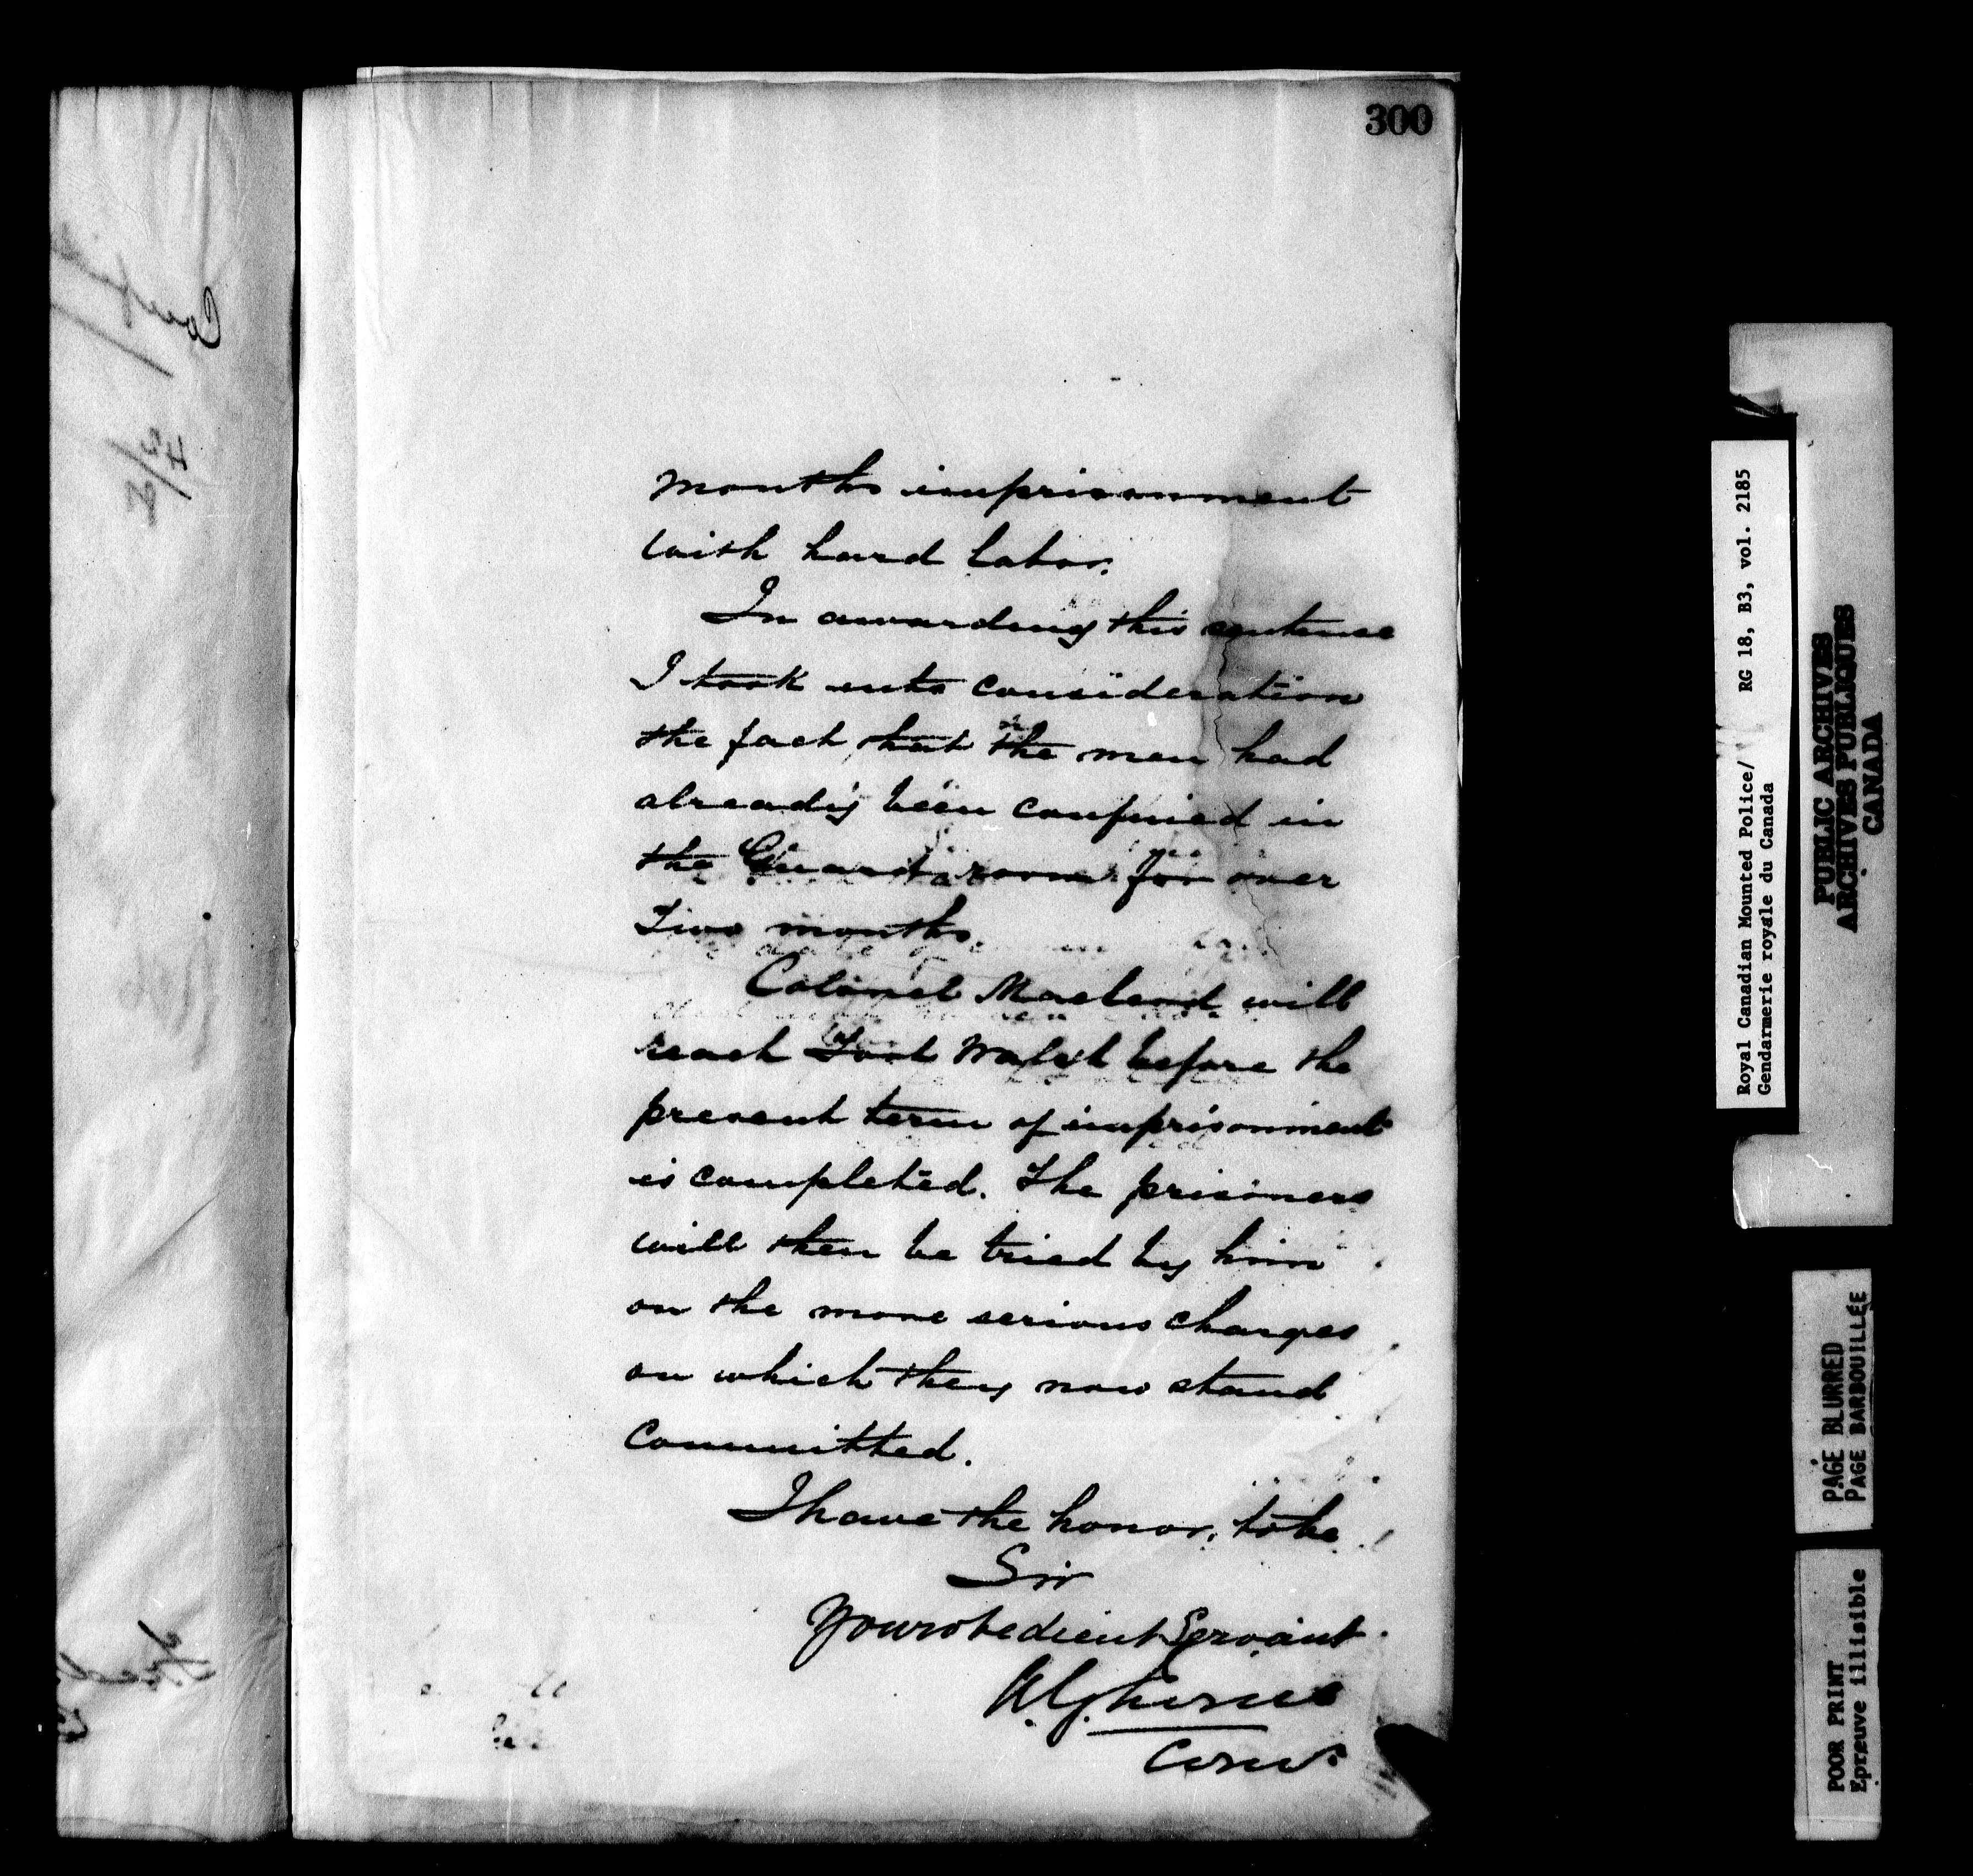 300
months imprisonment
with hard labor.
In awarding this sentence
I took into consideration
the fact that the men had
already been confined in
the Guard room for over
Two months.
Colonel Macleod will
reach Fort Walsh before the
present term of imprisonment
is completed. The prisoners
will then be tried by him
on the more serious charges
on which they now stand
committed.
I have the honor, to be
Sir
Your obedient Servant.
A.G. Irvine
Comr.
Royal Canadian Mounted Police/ RG 18, B3, vol. 2185
Gendarmerie royale du Canada
PUBLIC ARCHIVES
ARCHIVES PUBLIQUES
CANADA
PAGE BLURRED
PAGE BARBOUILLÉE
POOR PRINT
Epreuve illisible